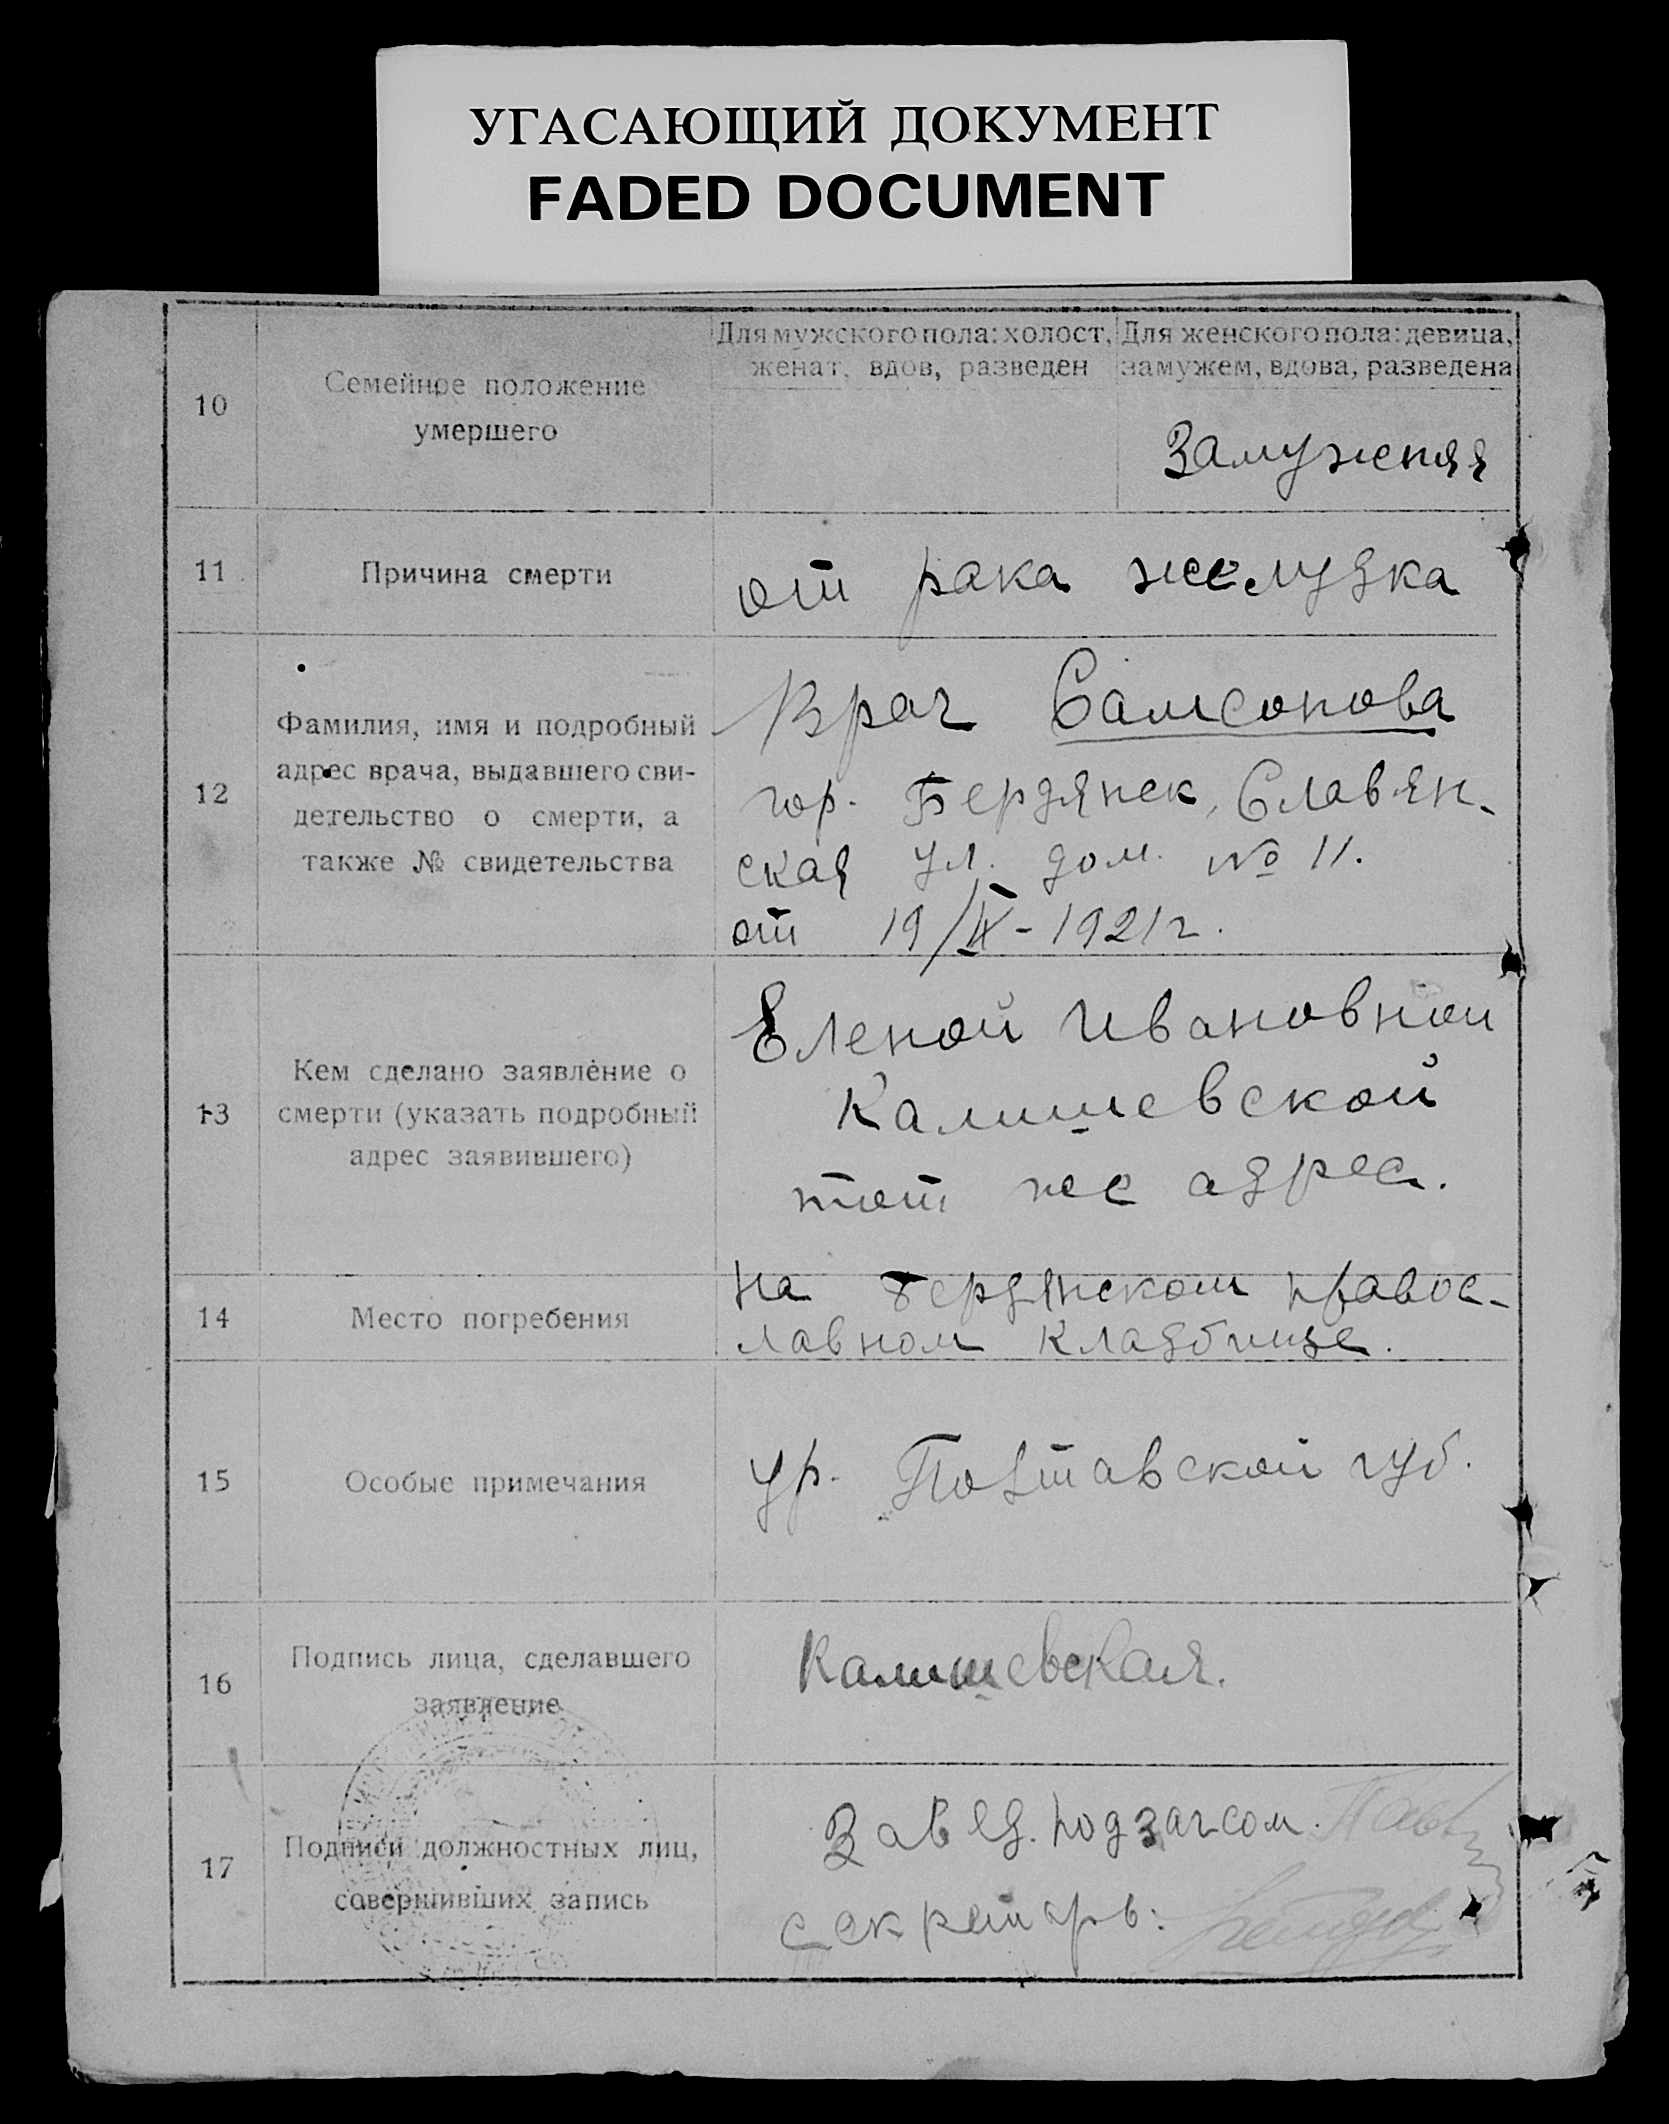 УГАСАЮЩИЙ ДОКУМЕНТ
FADED DOCUMENT
10
Семейное положение
умершего
Для мужского пола: холост,
женат, вдов, разведен
Для женского пола: девица,
замужем, вдова, разведена
Замужняя
11
Причина смерти
от рака желудка
12
Фамилия, имя и подробный
адрес врача, выдавшего сви-
детельство о смерти, а
также № свидетельства
Врач Самсонова
гор. Бердянск, Славян-
ская ул. дом. № 11.
от 19/IX-1921г.
13
Кем сделано заявление о
смерти (указать подробный
адрес заявившего)
Еленой Ивановной
Калишевской
тот же адрес.
14
Место погребения
на бердянском правос-
лавном кладбище.
15
Особые примечания
ур. Полтавской губ.
16
Подпись лица, сделавшего
заявление
Калишевская.
17
Подписи должностных лиц,
совершивших запись
Завед. подзагсом.
секретарь: